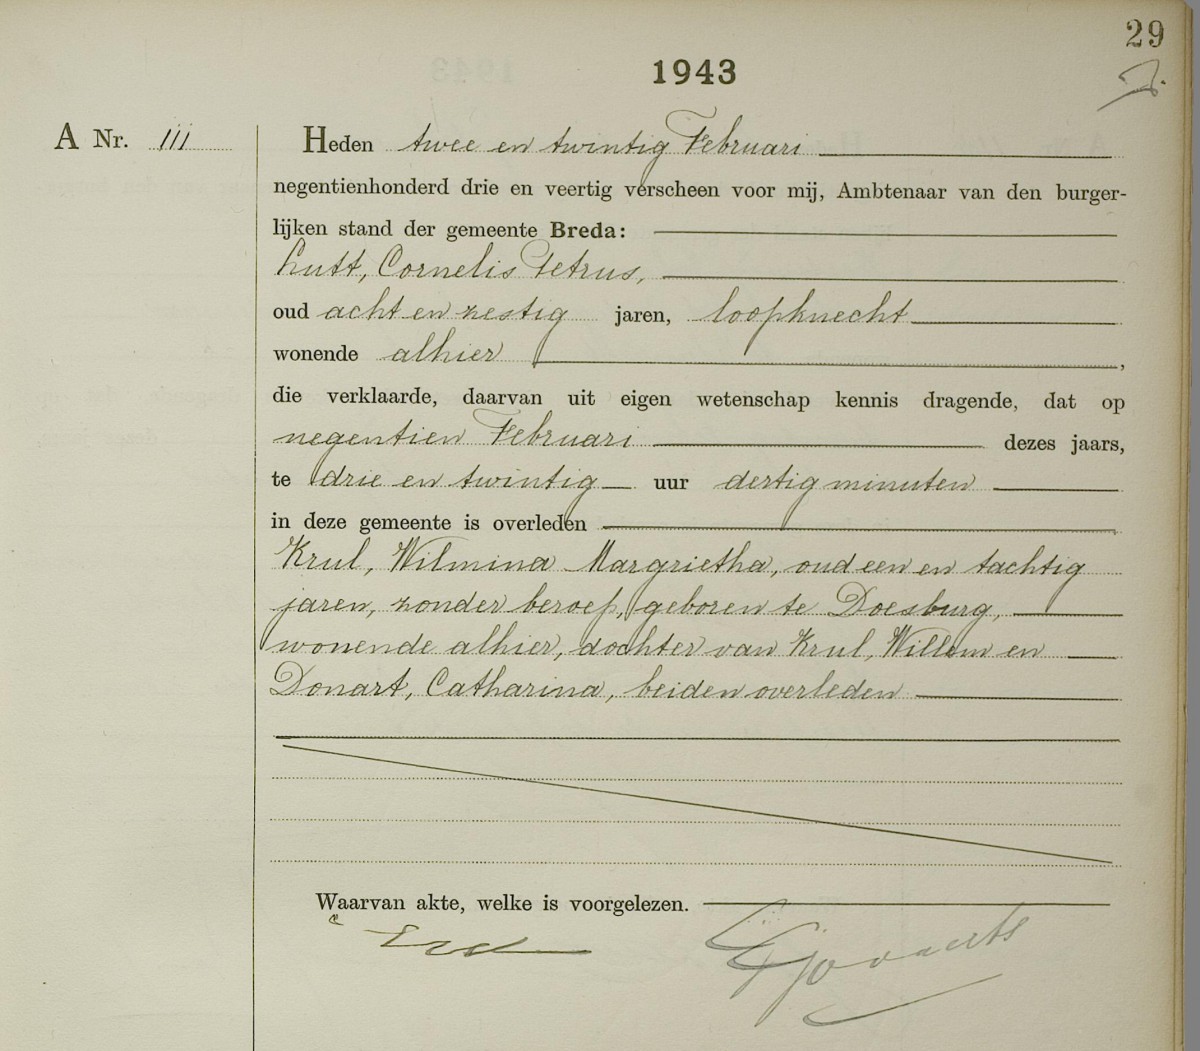 29
1943
A Nr. 111
Heden twee en twintig Februari
negentienhonderd drie en veertig verscheen voor mij, Ambtenaar van den burger-
lijken stand der gemeente Breda:
Lutt, Cornelis Petrus,
oud acht en zestig jaren, loopknecht
wonende alhier ,
die verklaarde, daarvan uit eigen wetenschap kennis dragende, dat op
negentien Februari dezes jaars,
te drie en twintig uur dertig minuten
in deze gemeente is overleden
Krul, Wilmina Margrietha, oud een en tachtig
jaren, zonder beroep, geboren te Doesburg,
wonende alhier, dochter van Krul, Willem en
Donart, Catharina, beiden overleden
Waarvan akte, welke is voorgelezen.